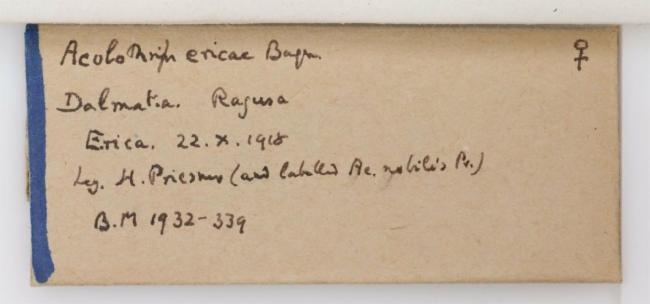 Aeolothrips ericae Bagn. ♀
Dalmatia. Ragusa
Erica. 22.X.1918
Leg. H. Priesner (and labelled Ae. nobilis Pr.)
B.M 1932-339